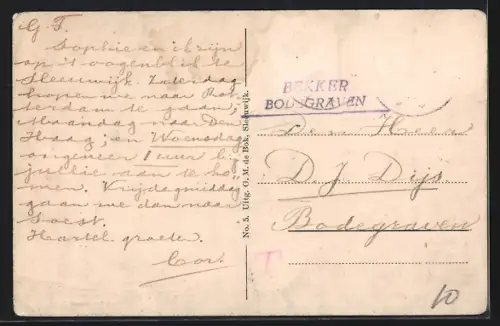 G. F.
Sophie en ik zijn
op 't oogenblik te
Sleeuwijk. Zaterdag
hopen we naar Rot-
terdam te gaan;
Maandag naar Den
Haag; en Woensdag
ongeveer 1 uur bij
jullie aan te ko-
men. Vrijdagmiddag
gaan we dan naar
Soest.
Hartel. groeten.
Cor.
No. 5. Uitg. G. M. de Bok, Sleeuwijk.
BEKKER
BODEGRAVEN
Den Heer
D. J. Dijs
Bodegraven
T
10